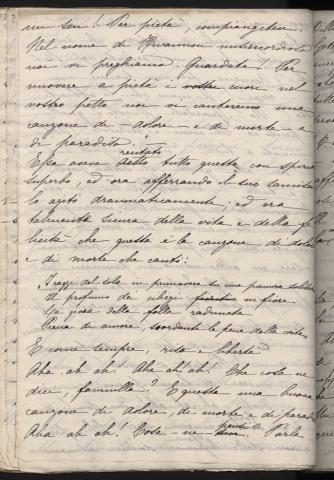 un sen! Per pietà, compiangeteci.
Nel nome di Kwannon misericordiosa
noi vi preghiamo. Guardate! Per
muovere a pietà i vostri cuori nel
vostro petto noi vi canteremo una
canzone di dolore e di morte e
di paradiso."
recitato
Essa aveva detto tutto questo con spirito
superbo, ed ora afferrando il suo samisen
lo agitò drammaticamente: ed ora
della vita e della fe
licità che questa è la canzone di dolore
e di morte che cantò:
I raggi del sole in primavera
Il profumo dei ciliegi fioriti in fiore
La gioia della folla radunata
Piena di amore, scordante le pene della vita
E come sempre, riso e libertà
Aha ah ah! Aha ah! ah! Che cosa ne
dici, fanciulla? È questa una buona
canzone di dolore, di morte e di parad
Aha ah ah! Cosa ne pensi Parla